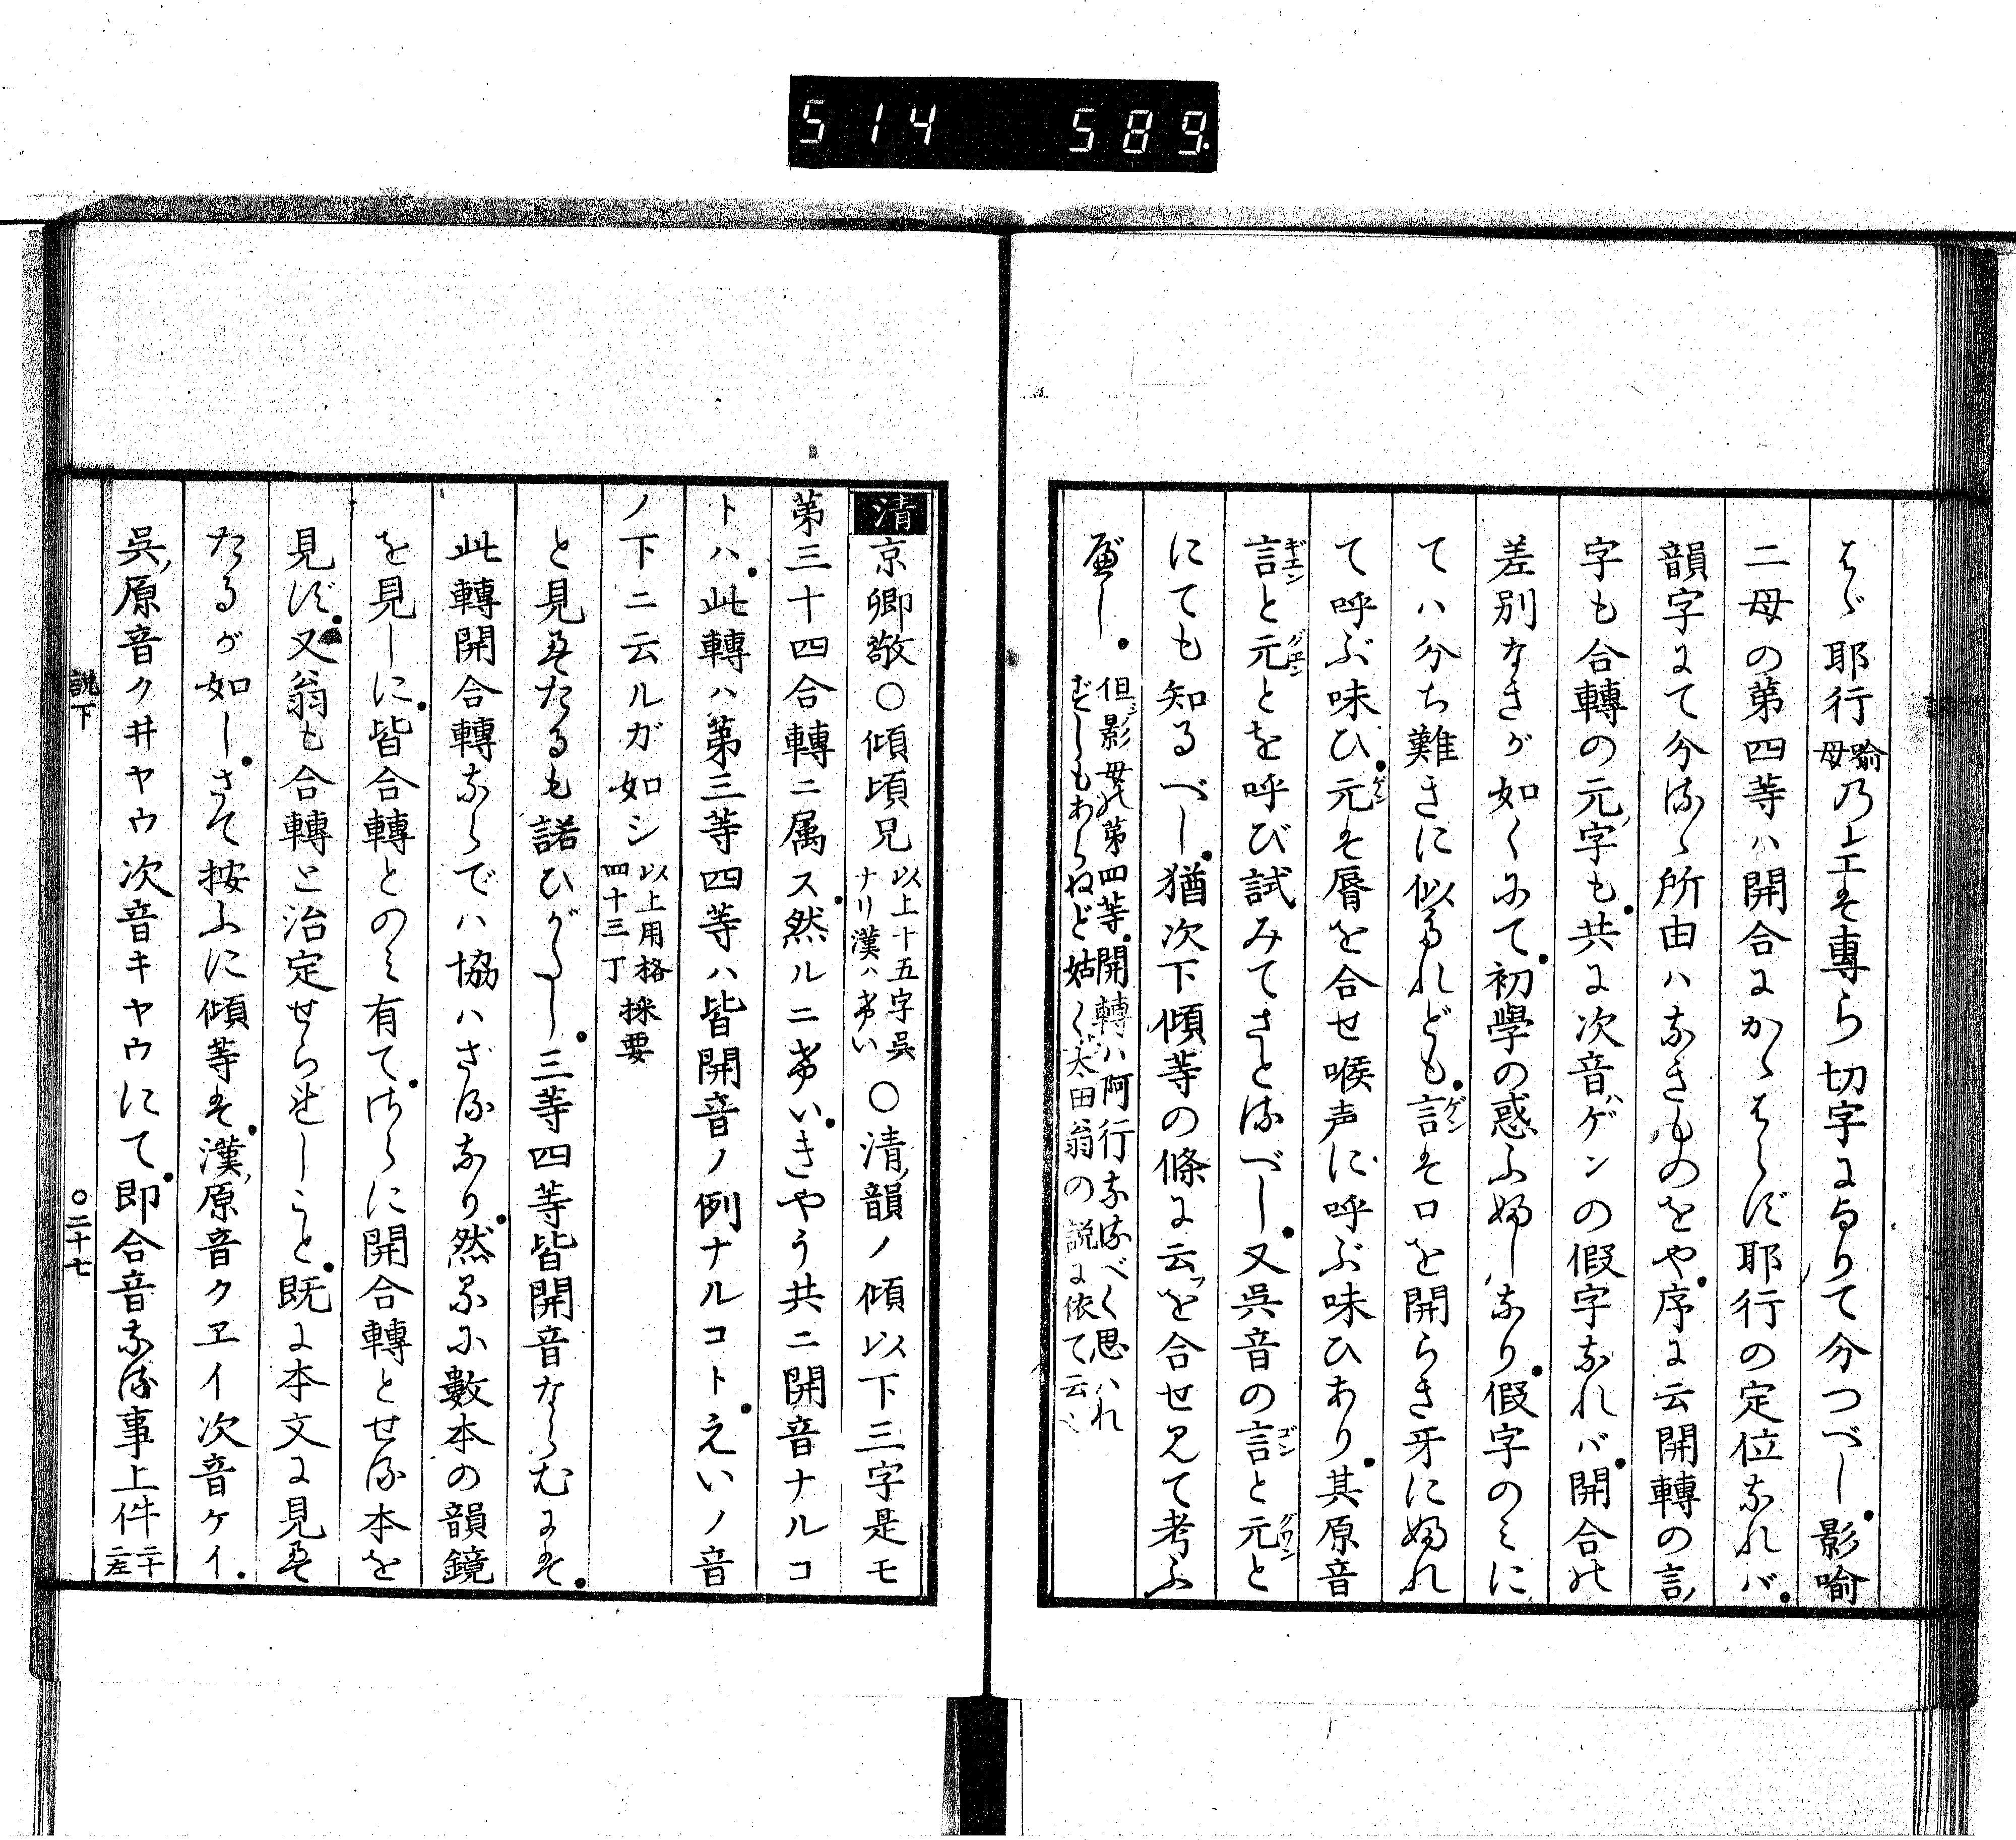 514 589.
はゞ耶行喩母乃エは專ら切字に由りて分つべし。影喩
二母の第四等ハ開合にかゝはらず耶行の定位なれバ。
韻字にて分るゝ所由ハなきものをや。序に云開轉の言
字も合轉の元字も。共に次音ゲンの假字なれバ。開合の
差別なきが如くにて。初學の惑ふ婦しなり。假字のみに
てハ分ち難きに似たれども。言ゲンは口を開らき牙に婦れ
て呼ぶ味ひ。元ゲンは脣を合せ喉声に呼ぶ味ひあり。其原音
言ギエンと元グヱンとを呼び試みてさとるべし。又呉音の言ゴンと元グワンと
にても知るべし。猶次下傾等の條に云ヲを合せ見て考ふ
べし。但シ影母の第四等。開轉ハ阿行なるべく思ハれ
ずしもあらねど姑く太田翁の説に依て云
清京卿敬○傾頃兄以上十五字呉ナリ漢ハけい○清韻ノ傾以下三字是モ
第三十四合轉ニ属ス。然ルニけい。きやう共ニ開音ナルコ
トハ。此轉ハ第三等四等ハ皆開音ノ例ナルコト。えいノ音
ノ下ニ云ルガ如シ以上用格四十三丁採要
と見えたるも諾ひがたし。三等四等皆開音ならむには。
此轉開合轉ならでハ協ハざるなり。然るに數本の韻鏡
を見しに。皆合轉とのみ有て。さらに開合轉とせる本を
見ず。又翁も合轉と治定せられしこと。既に本文に見え
たるが如し。さて按ふに傾等は。漢原音クヱイ次音ケイ。
呉原音クヰヤウ次音キヤウにて。即合音なる事上件二十二左
説下 ○二十七